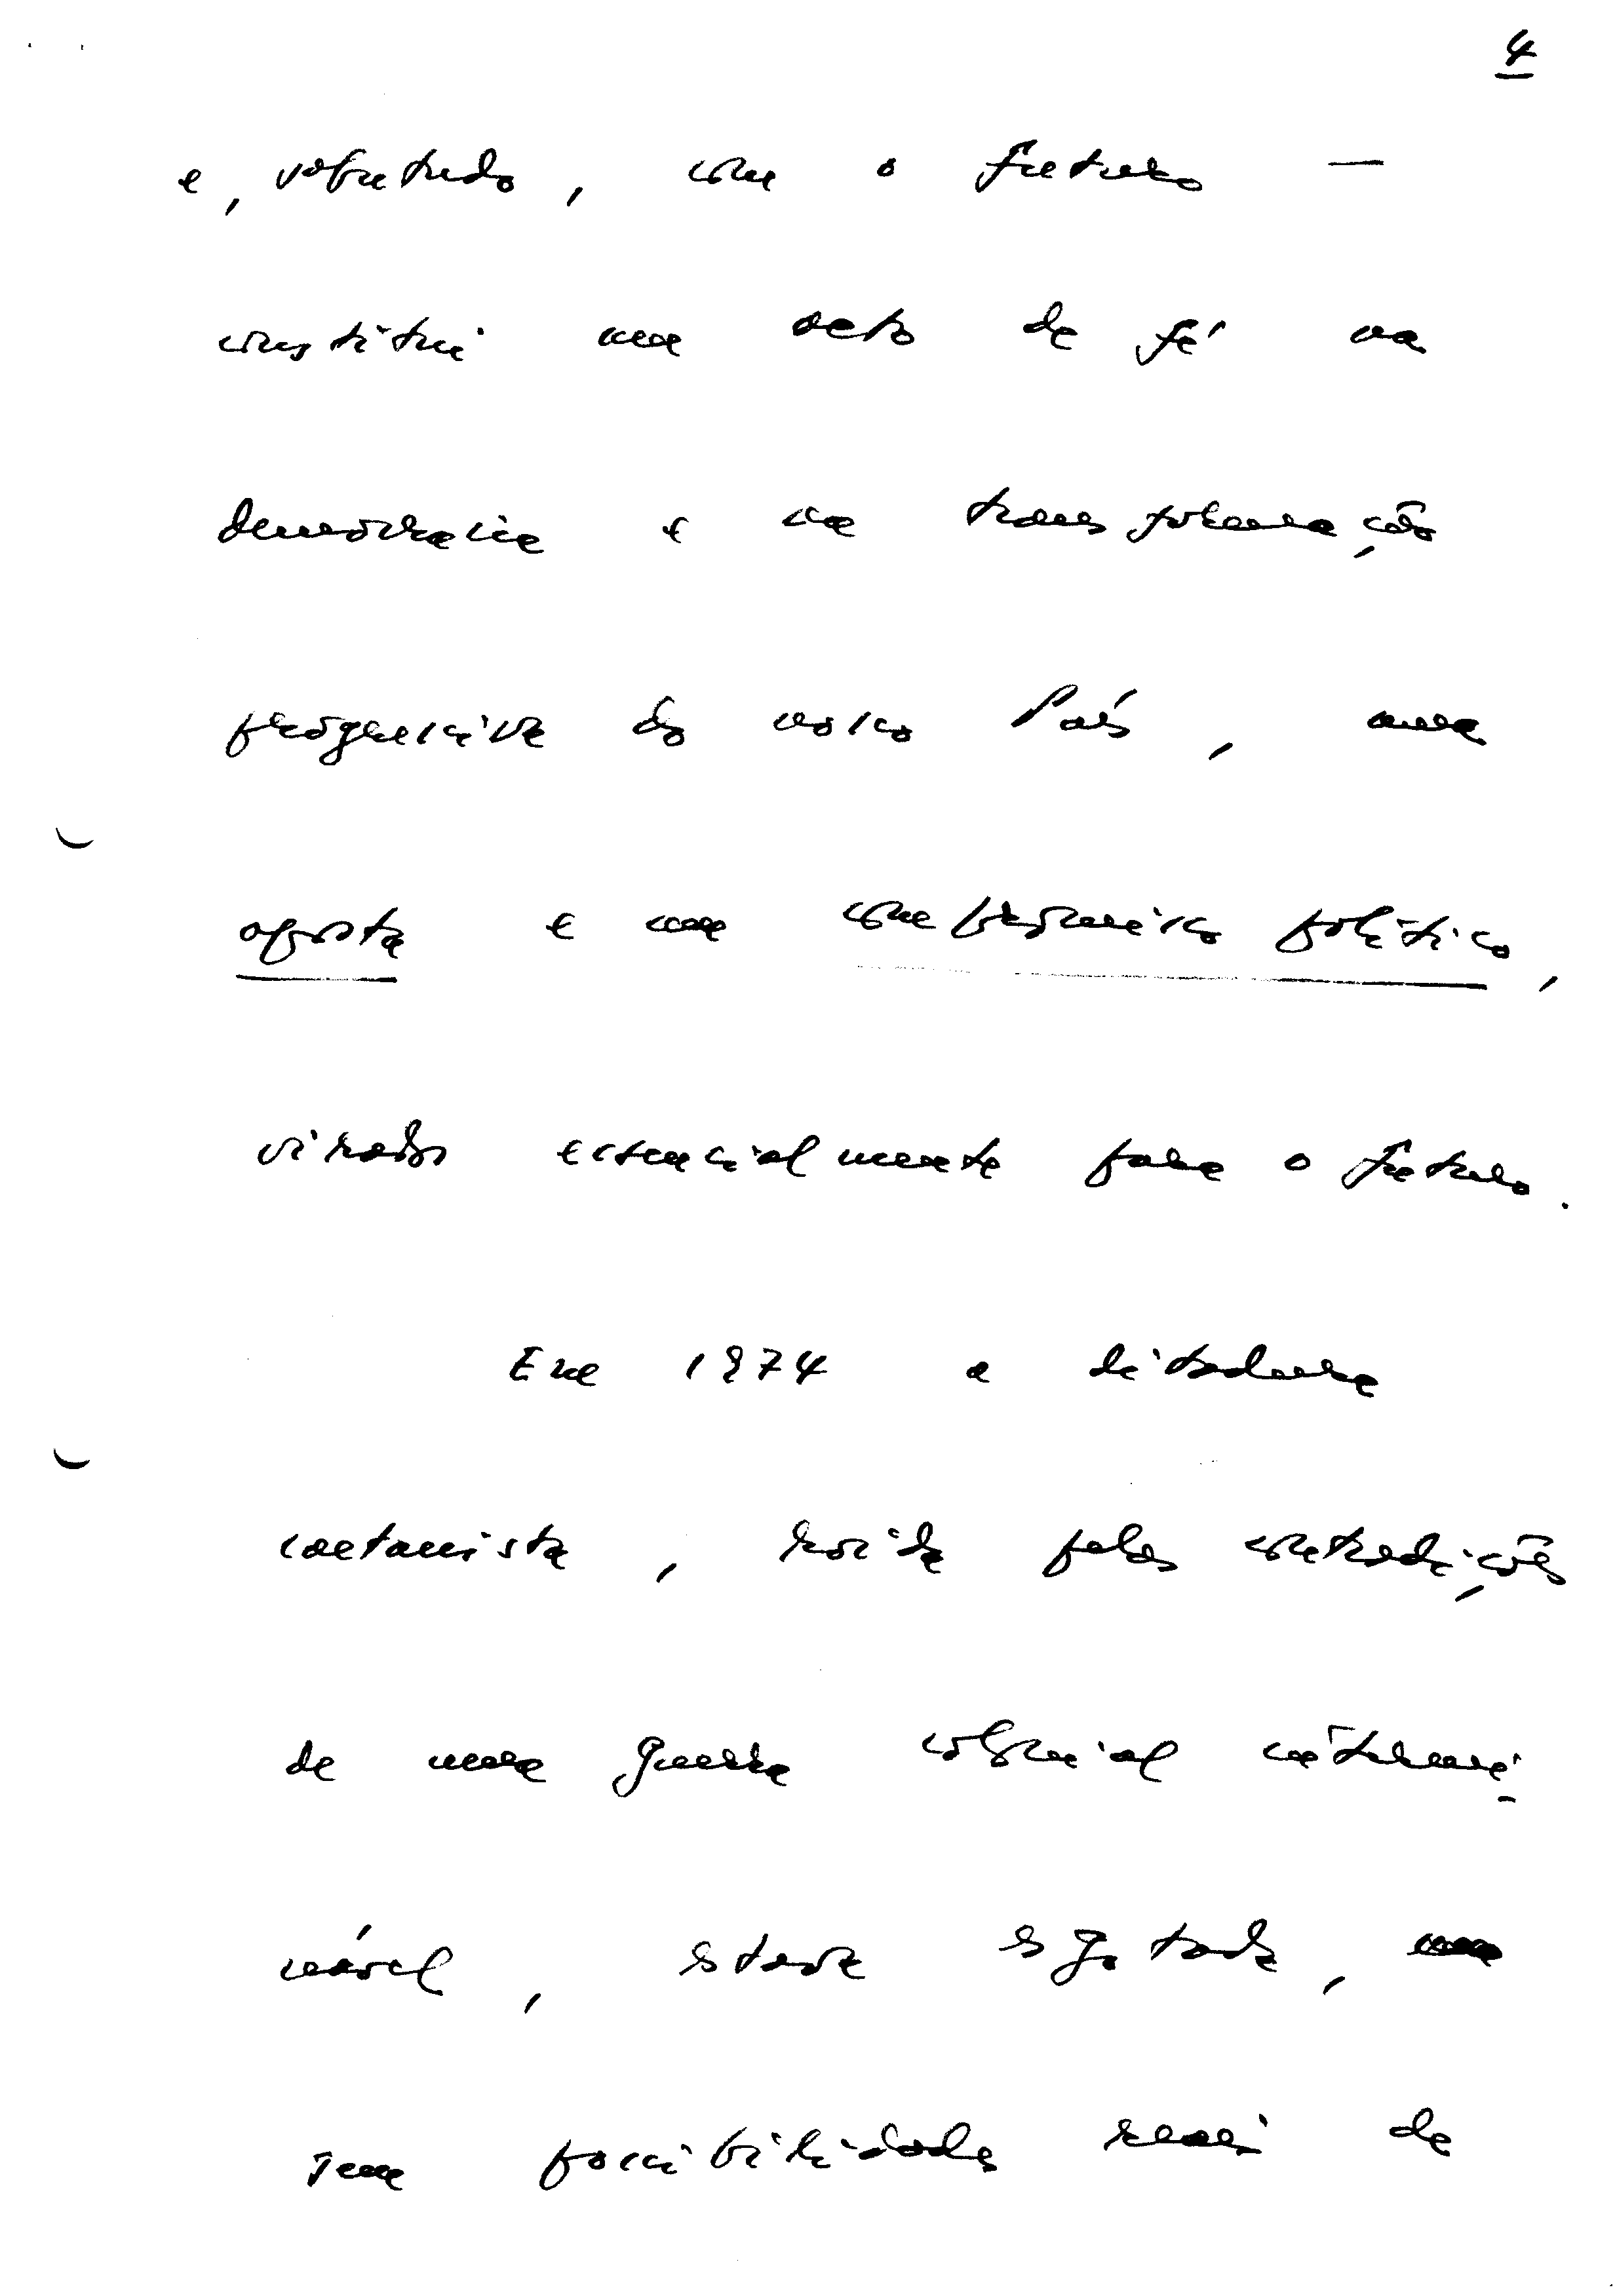 4
e, sobretudo, com o futuro —
constitui um acto de fé na
democracia e na transformação
progressiva do nosso País, uma
aposta e um compromisso político,
virados essencialmente para o futuro.
Em 1974 a ditadura
caetanista, roída pelas contradições
de uma guerra colonial intermi-
nável, estava esgotada,
sem possibilidades reais de